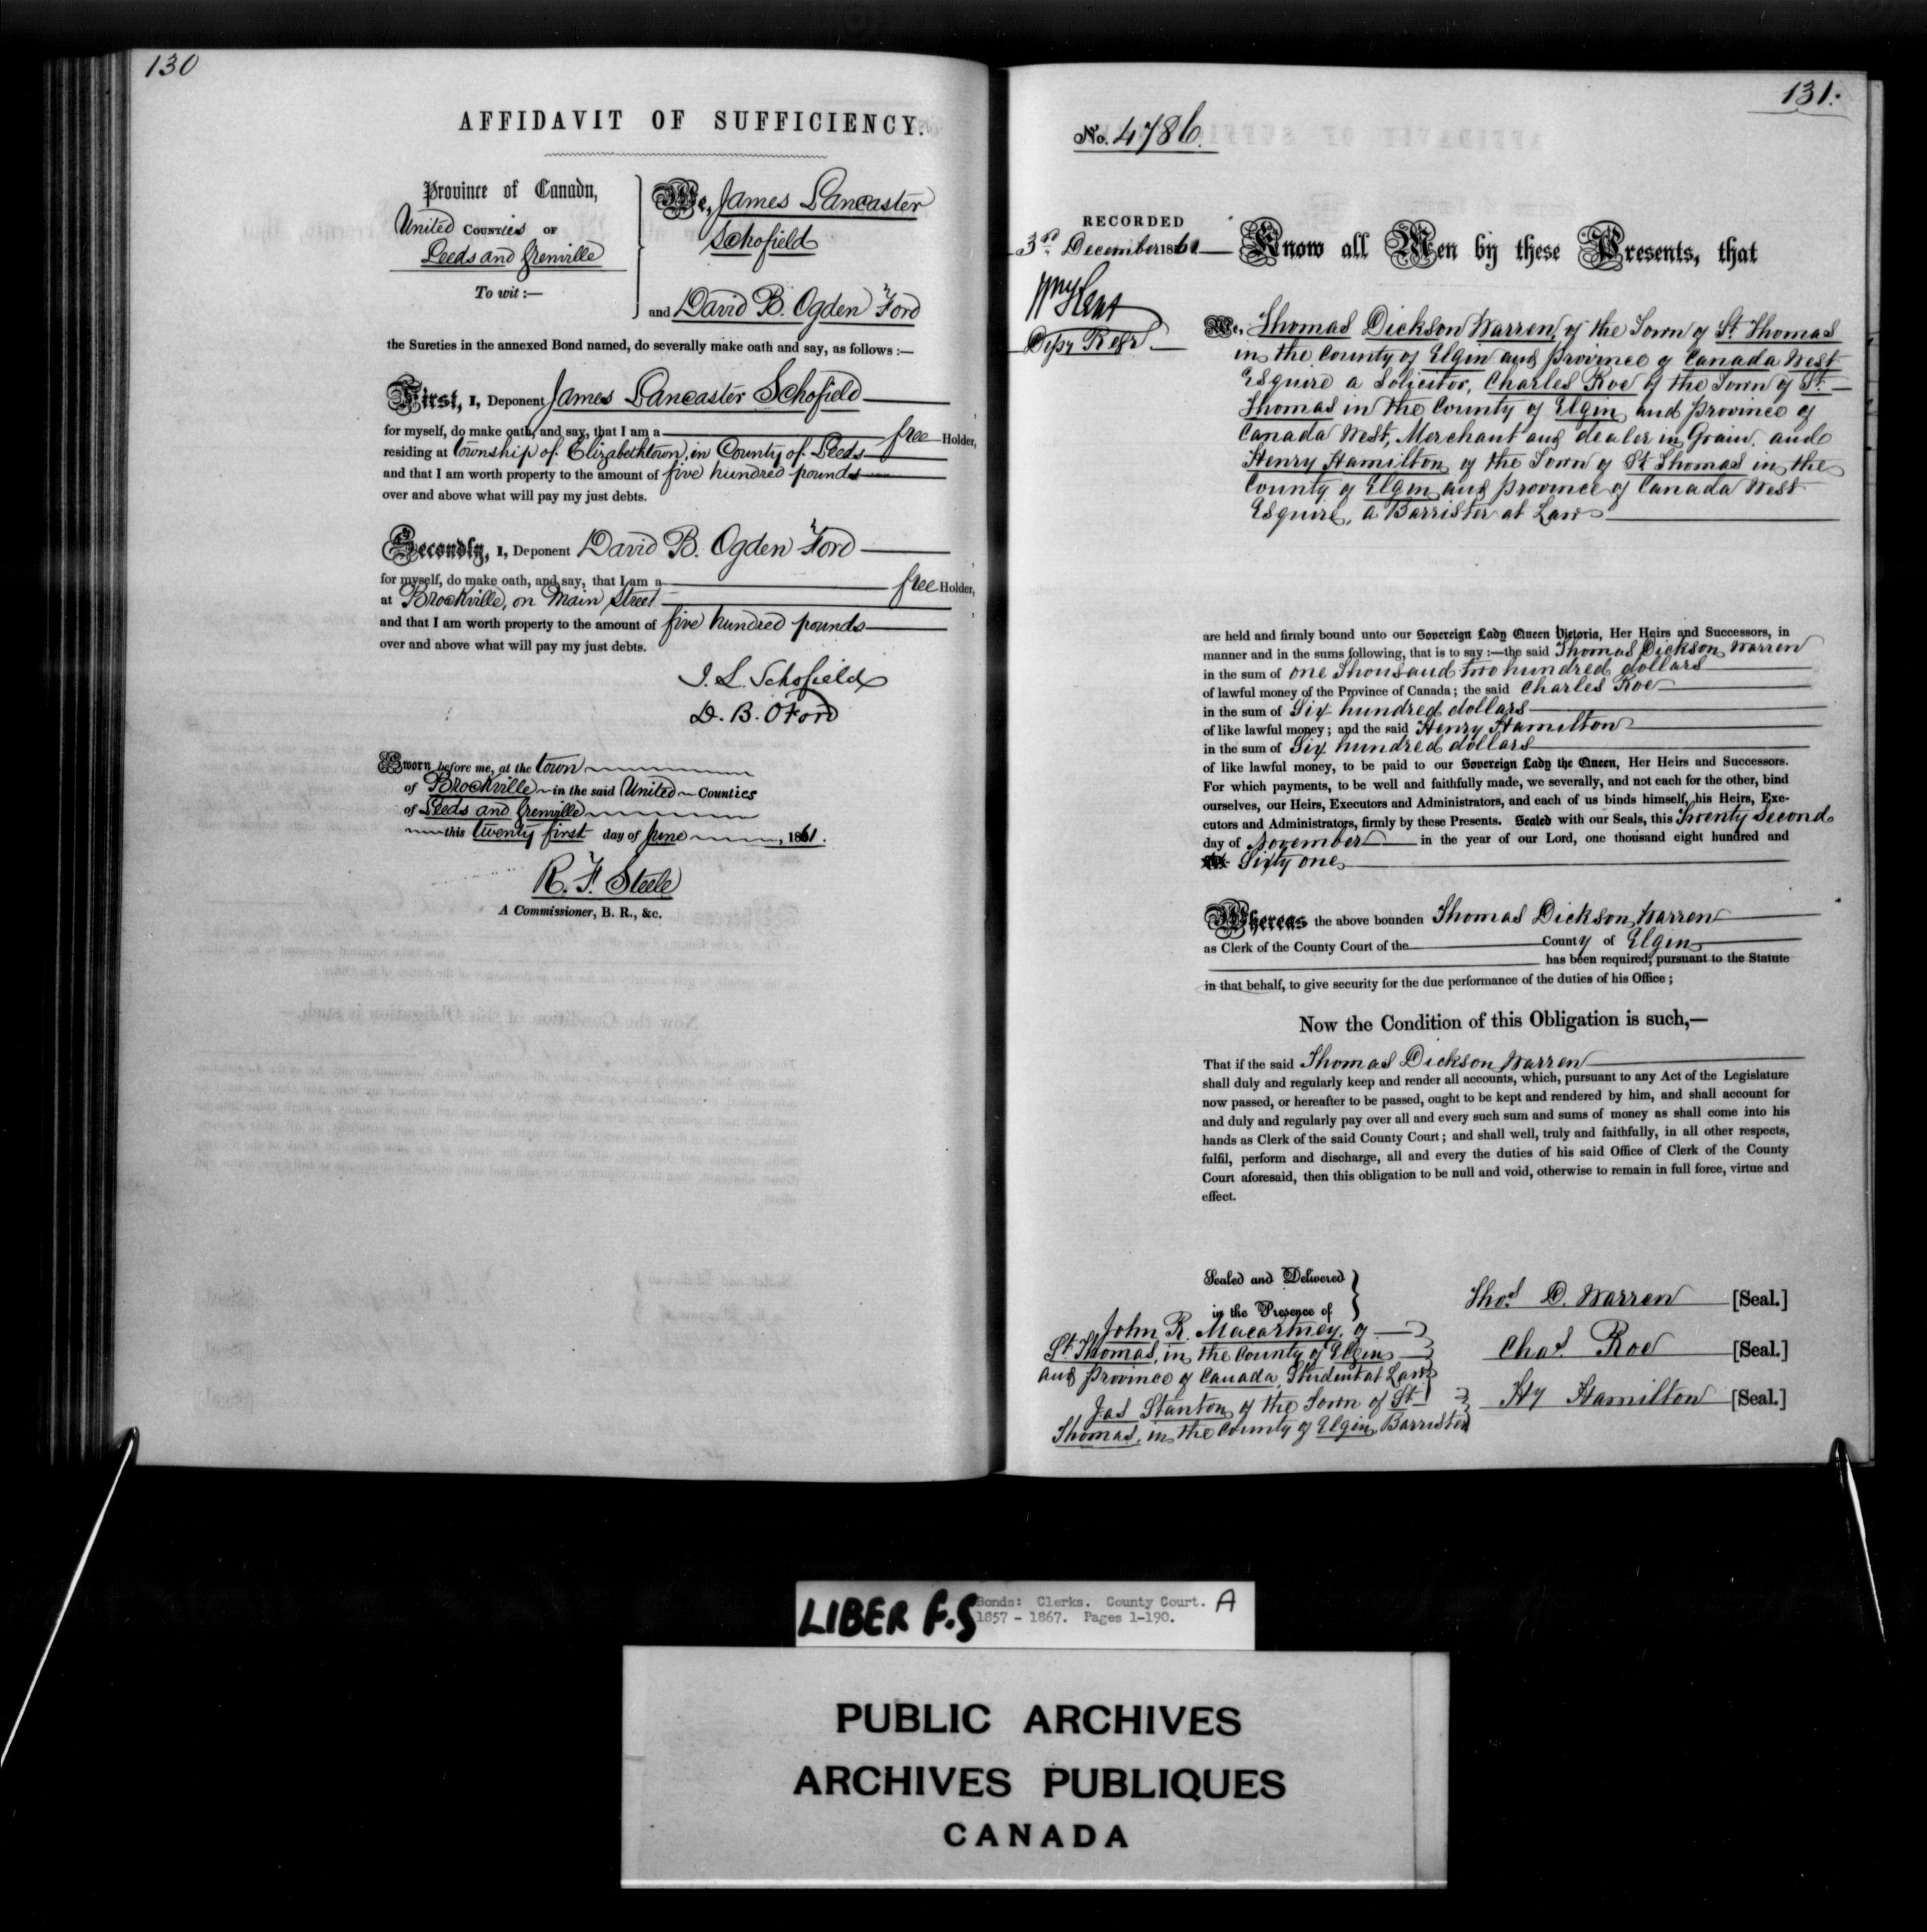 130
AFFIDAVIT OF SUFFICIENCY.
Province of Canada,
United COUNTies OF
Leeds and Grenville
To wit :—
We, James Lancaster
Schofield
and David B. Ogden Ford
the Sureties in the annexed Bond named, do severally make oath and say, as follows :—
First, I, Deponent James Lancaster Schofield
for myself, do make oath, and say, that I am a free Holder,
residing at township of Elizabethtown, in County of Leeds
and that I am worth property to the amount of five hundred pounds
over and above what will pay my just debts.
Secondly, I, Deponent David B. Ogden Ford
for myself, do make oath, and say, that I am a free Holder,
at Brockville, on Main Street
and that I am worth property to the amount of five hundred pounds
over and above what will pay my just debts.
J. L. Schofield
D. B. O Ford
Sworn before me, at the town
of Brockville in the said United Counties
of Leeds and Grenville
this twenty first day of June, 1861.
R. F. Steele
A Commissioner, B. R., &c.
131.
No. 4786.
RECORDED
3rd December 1861
Wm Kent
Depy Regr.
Know all Men by these Presents, that
We, Thomas Dickson Warren, of the Town of St. Thomas
in the County of Elgin and Province of Canada West
Esquire a Solicitor, Charles Roe of the Town of St.
Thomas in the County of Elgin and Province of
Canada West, Merchant and dealer in Grain, and
Henry Hamilton of the Town of St Thomas in the
County of Elgin and Province of Canada West
Esquire, a Barrister at Law
are held and firmly bound unto our Sovereign Lady Queen Victoria, Her Heirs and Successors, in
manner and in the sums following, that is to say :—the said Thomas Dickson Warren
in the sum of one Thousand two hundred dollars
of lawful money of the Province of Canada ; the said Charles Roe
in the sum of Six hundred dollars
of like lawful money ; and the said Henry Hamilton
in the sum of Six hundred dollars
of like lawful money, to be paid to our Sovereign Lady the Queen, Her Heirs and Successors.
For which payments, to be well and faithfully made, we severally, and not each for the other, bind
ourselves, our Heirs, Executors and Administrators, and each of us binds himself, his Heirs, Exe-
cutors and Administrators, firmly by these Presents. Sealed with our Seals, this Twenty Second
day of November in the year of our Lord, one thousand eight hundred and
Sixty one
Whereas the above bounden Thomas Dickson Warren
as Clerk of the County Court of the County of Elgin
has been required, pursuant to the Statute
in that behalf, to give security for the due performance of the duties of his Office ;
Now the Condition of this Obligation is such,—
That if the said Thomas Dickson Warren
shall duly and regularly keep and render all accounts, which, pursuant to any Act of the Legislature
now passed, or hereafter to be passed, ought to be kept and rendered by him, and shall account for
and duly and regularly pay over all and every such sum and sums of money as shall come into his
hands as Clerk of the said County Court ; and shall well, truly and faithfully, in all other respects,
fulfil, perform and discharge, all and every the duties of his said Office of Clerk of the County
Court aforesaid, then this obligation to be null and void, otherwise to remain in full force, virtue and
effect.
Sealed and Delivered
in the Presence of
John R. Macartney, of
St Thomas, in the County of Elgin
and Province of Canada, Student at Law
Jas Stanton of the Town of St
Thomas, in the County of Elgin, Barrister
Thos. D. Warren [Seal.]
Chas. Roe [Seal.]
Hy Hamilton [Seal.]
LIBER F.S
Bonds: Clerks. County Court. A
1857 - 1867. Pages 1-190.
PUBLIC ARCHIVES
ARCHIVES PUBLIQUES
CANADA